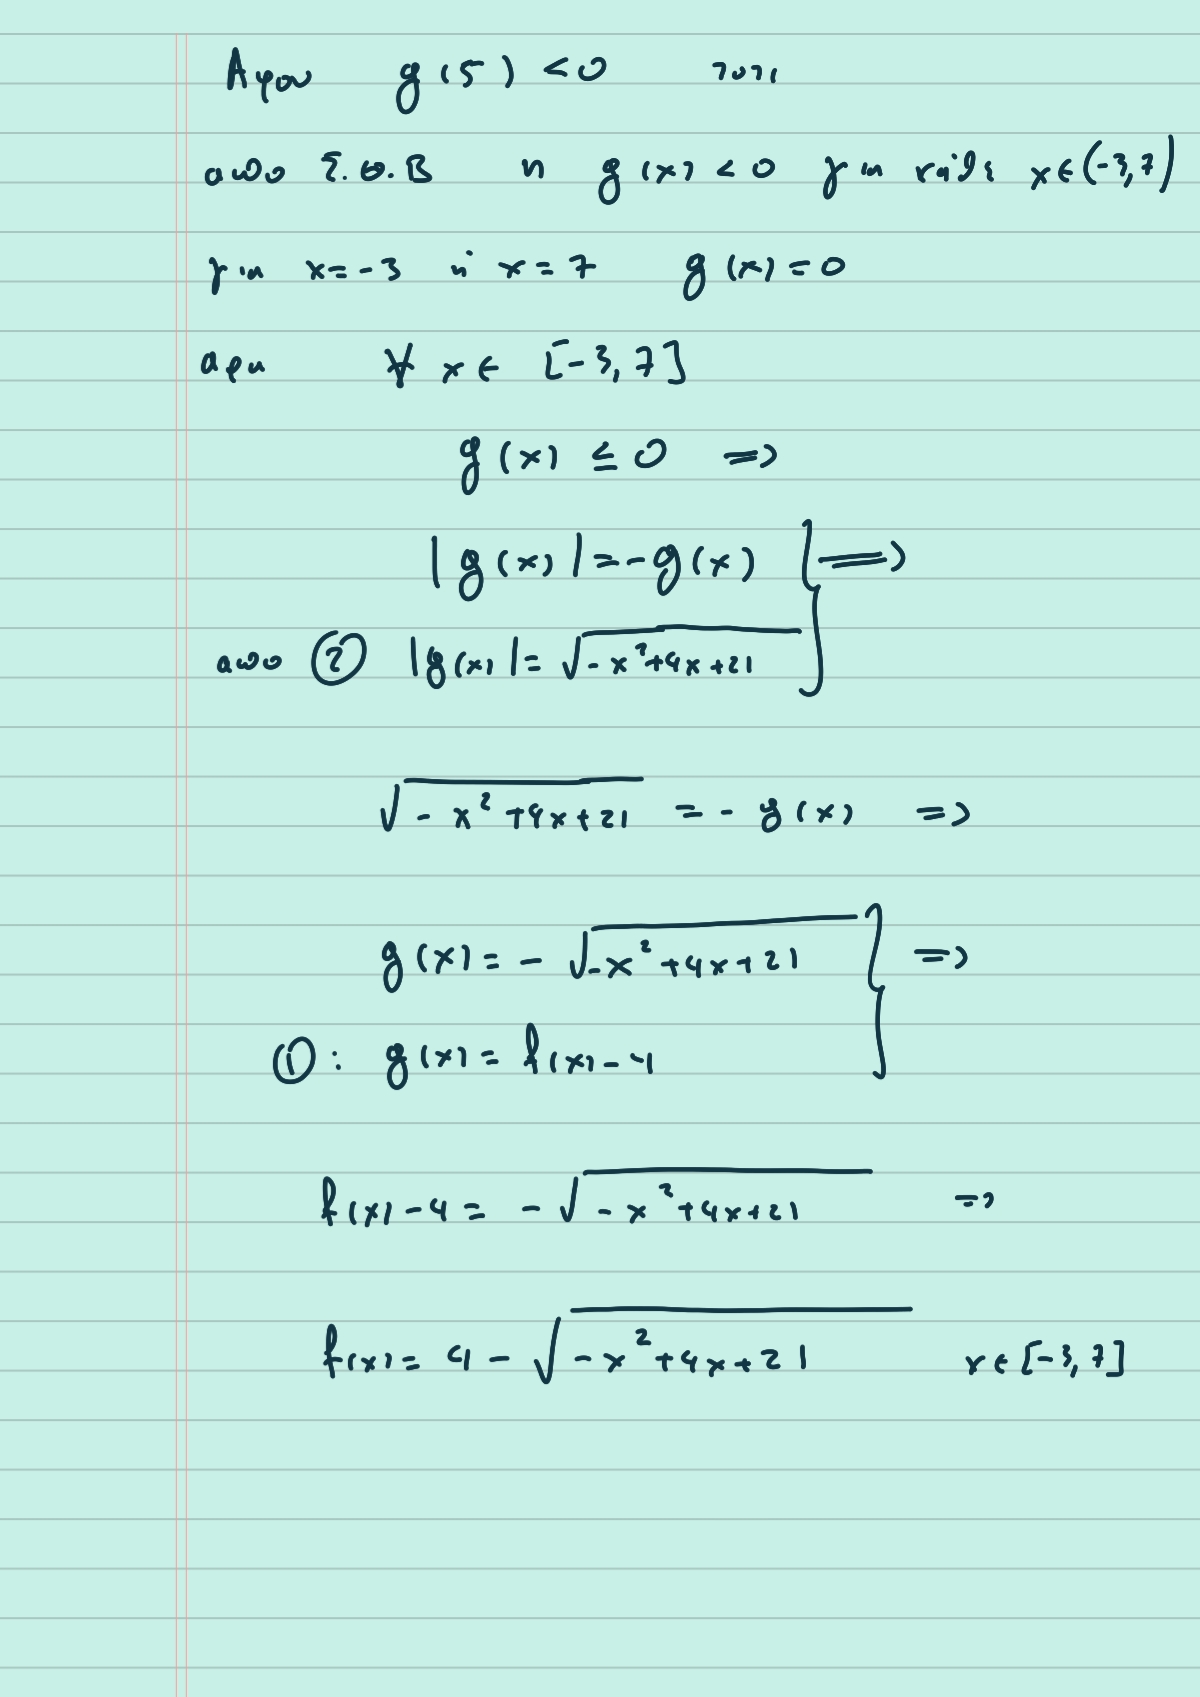 Αφου g(5) < 0 τοτε
απο Σ.Θ.Β η g(x) < 0 για καθε x ∈ (-3,7)
για x = -3 ή x = 7 g(x) = 0
αρα ∀ x ∈ [-3,7]
g(x) ≤ 0 =>
|g(x)| = -g(x) } =>
απο ② |g(x)| = √(-x²+4x+21)
√(-x²+4x+21) = -g(x) =>
g(x) = -√(-x²+4x+21) } =>
①: g(x) = f(x) - 4
f(x) - 4 = -√(-x²+4x+21) =>
f(x) = 4 - √(-x²+4x+21) x ∈ [-3,7]